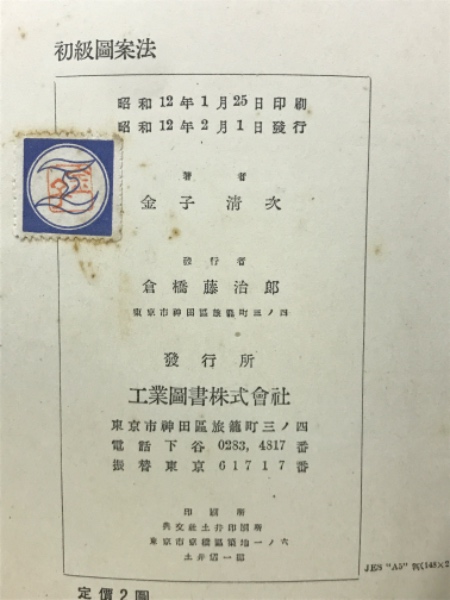 初級圖案法
昭和12年1月25日印刷
昭和12年2月1日發行
著者
金子清次
發行者
倉橋藤治郎
東京市神田區旅籠町三ノ四
發行所
工業圖書株式會社
東京市神田區旅籠町三ノ四
電話下谷 0283, 4817 番
振替東京 61717 番
印刷所
共文社土井印刷所
東京市京橋區築地一ノ六
土井
一郎
JES "A5" 判(148×2
定價2圓